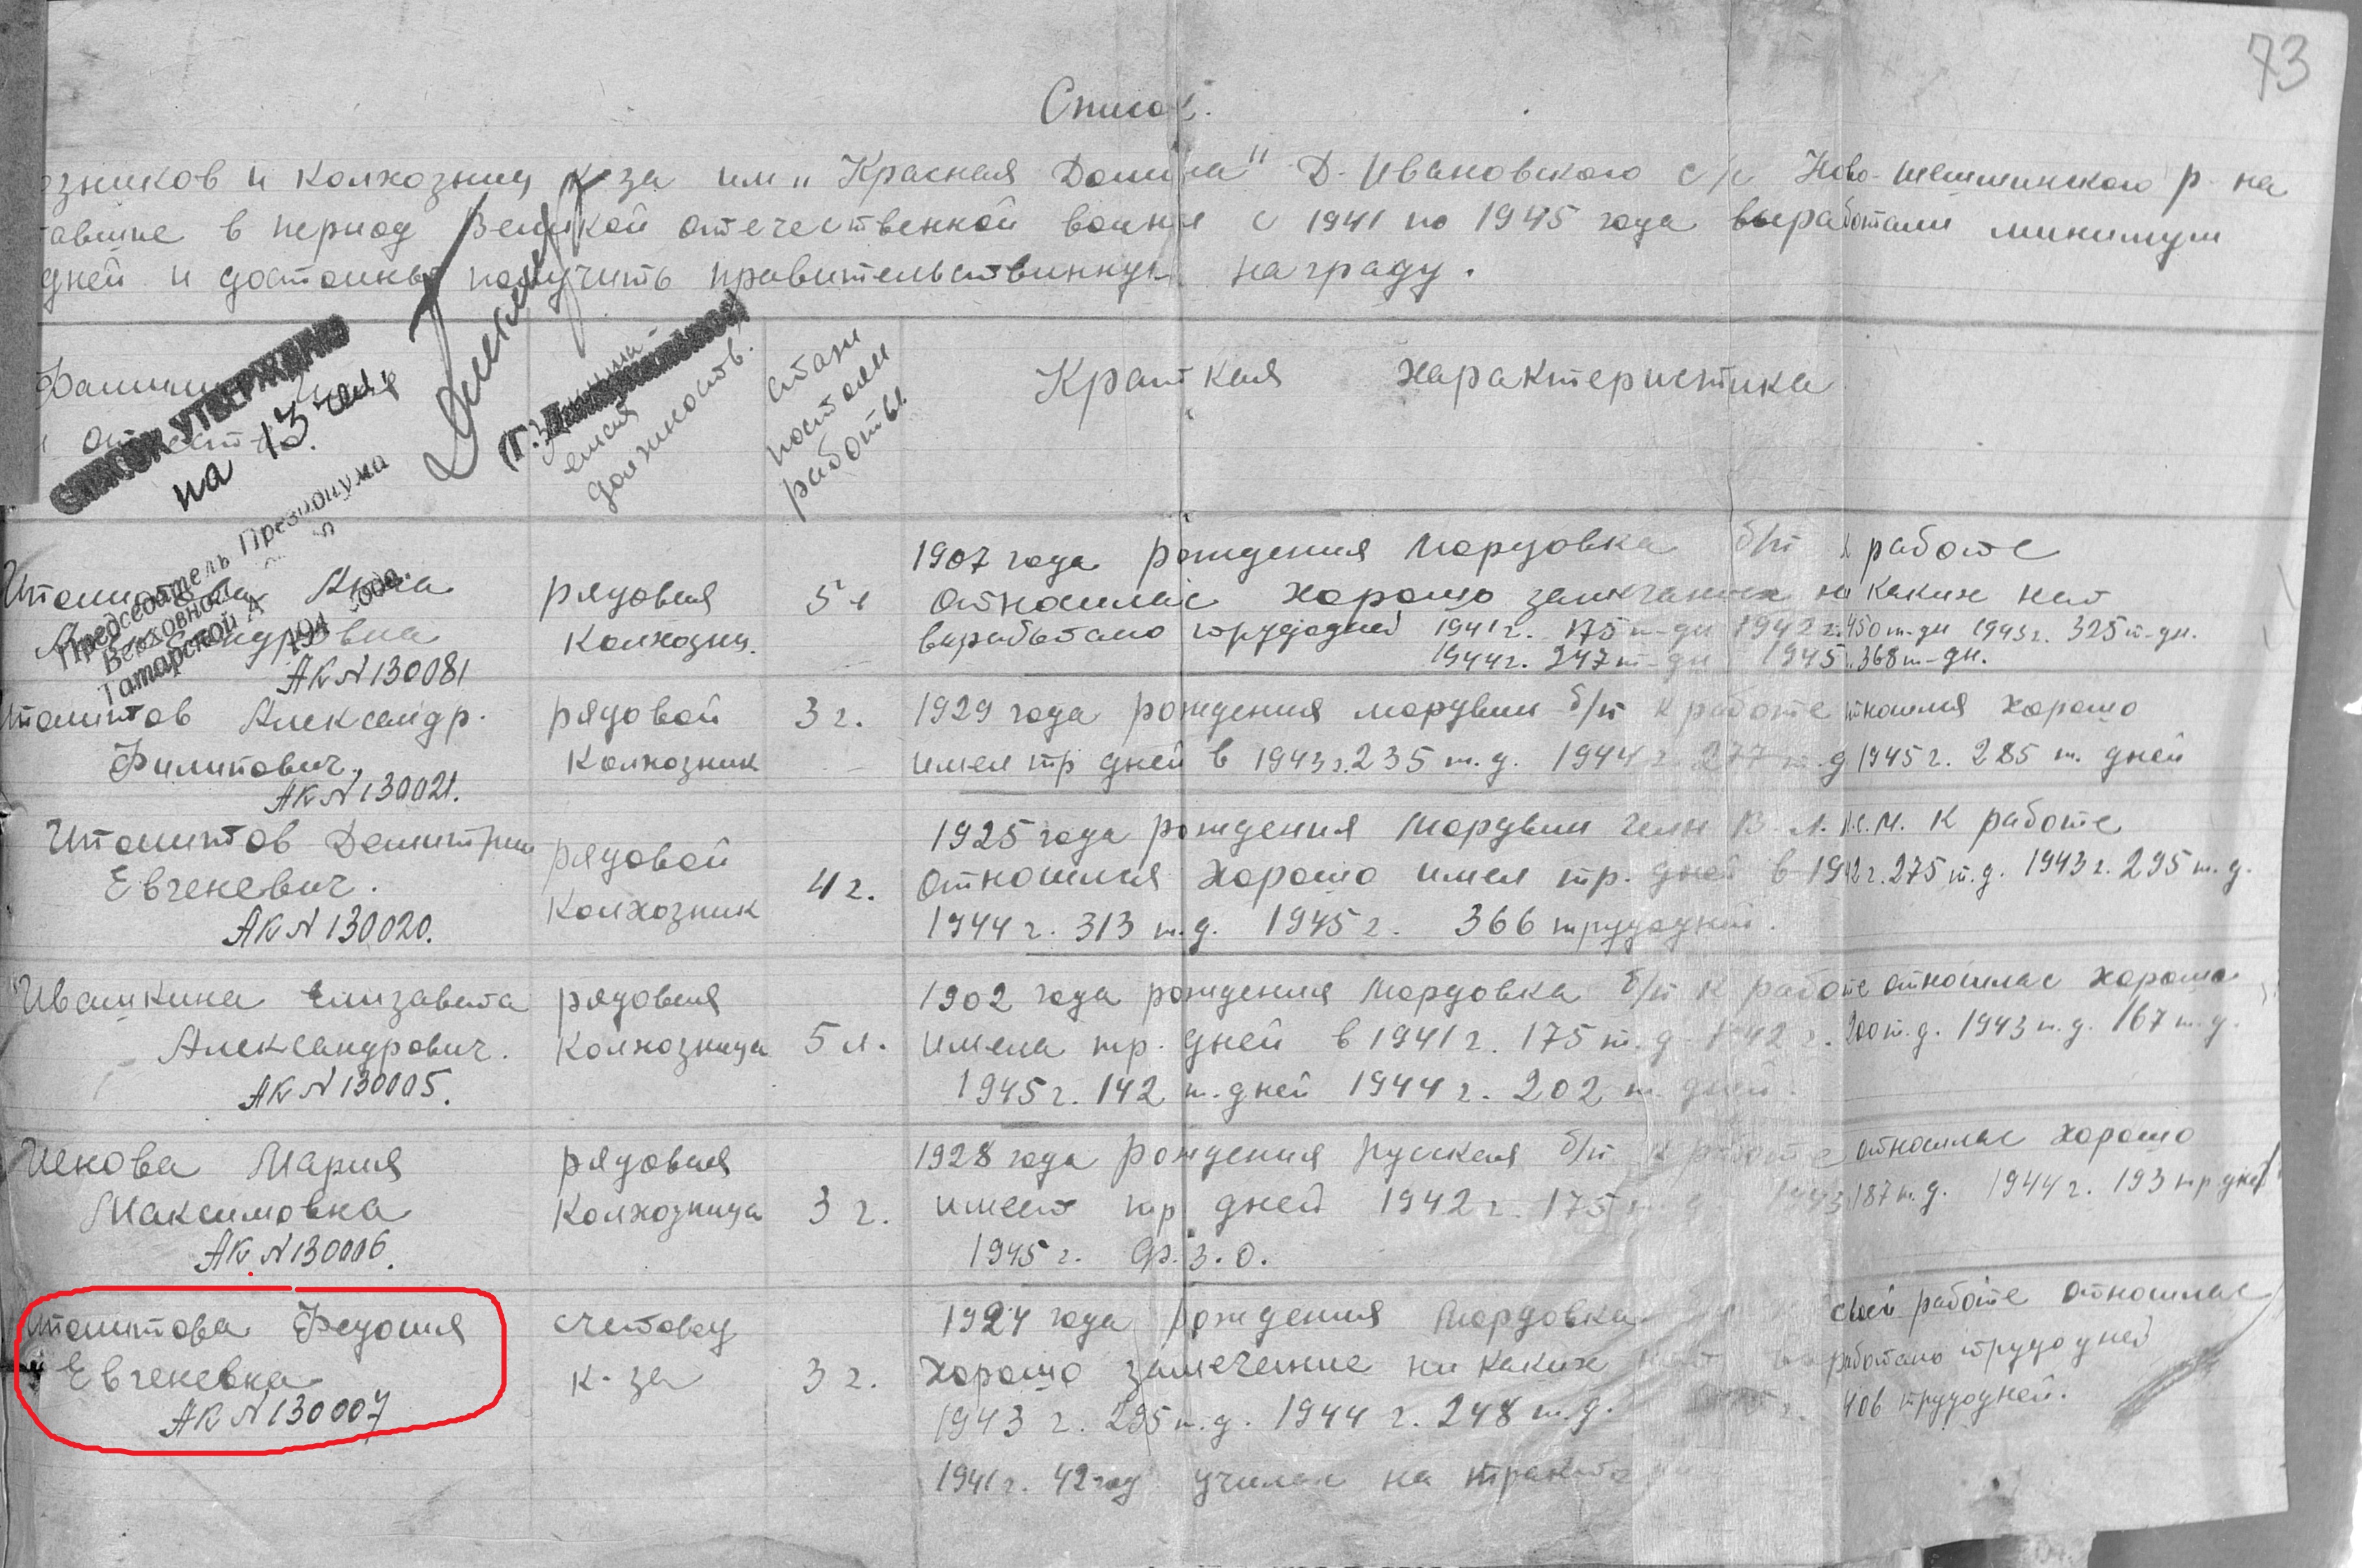 73
Список.
озников и колхозниц к-за им „Красная Долина" Д-Ивановского с/с Ново-Шешминского р-на
авшие в период Великой отечественной войны с 1941 по 1945 года выработали минимум
дней и достойны получить правительствинную награду.
Фамилия Имя
и отчество
СПИСОК УТВЕРЖДЕНО
на 13 чел.
Председатель Президиума
Верховного
Татарской А
194 года.
должность.
стаж
постоян
работы
Краткая характеристика
Ипалитова Анна
Александровна
АК N 130081
рядовая
колхозниц.
5 л
1907 года рождения мордовка б/п к работе
относилас хорошо замечания ни каких нет
вырабатано трудодней 1941 г. 175 т-дн 1942 г. 450 т-дн 1943 г. 325 т-дн.
1944 г. 247 т-дн 1945 368 т-дн.
Ипалитов Александр.
Филипович.
АК N 130021.
рядовой
колхозник
3 г.
1929 года рождения мордвин б/п к работе относился хорошо
имел тр дней в 1943 г. 235 т.д. 1944 г. 277 т.д 1945 г. 285 т. дней
Ипалитов Демитрии
Евгеневич.
АК N 130020.
рядовой
колхозник
4 г.
1925 года рождения мордвин член В.Л.К.С.М. к работе
относился хорошо имел тр. дней в 1942 г. 275 т.д. 1943 г. 295 т.д.
1944 г. 313 т.д. 1945 г. 366 трудодней.
Ивашкина Елизавета
Александрович.
АК N 130005.
рядовая
колхозница
5 л.
1902 года рождения мордовка б/п к работе относилас хорошо
имела тр. дней в 1941 г. 175 т.д 1942 г. 200 т.д. 1943 т.д. 167 т.д.
1945 г. 142 т. дней 1944 г. 202 т. дней.
Искова Мария
Максимовна
АК N 130006.
рядовая
колхозница
3 г.
1928 года рождения русская б/п к работе относилас хорошо
имеет тр дней 1942 г. 175 т.д. 1943 187 т.д. 1944 г. 193 тр дней
1945 г. Ф.З.О.
Ипалитова Федосия
Евгеневна
АК N 130007
счетовод
к-за
3 г.
1924 года рождения мордовка к своей работе относилас
хорошо замечение ни каких нет выработано трудодней
1943 г. 295 т.д. 1944 г. 248 т.д. 406 трудодней.
1941 г. 42 год училас на